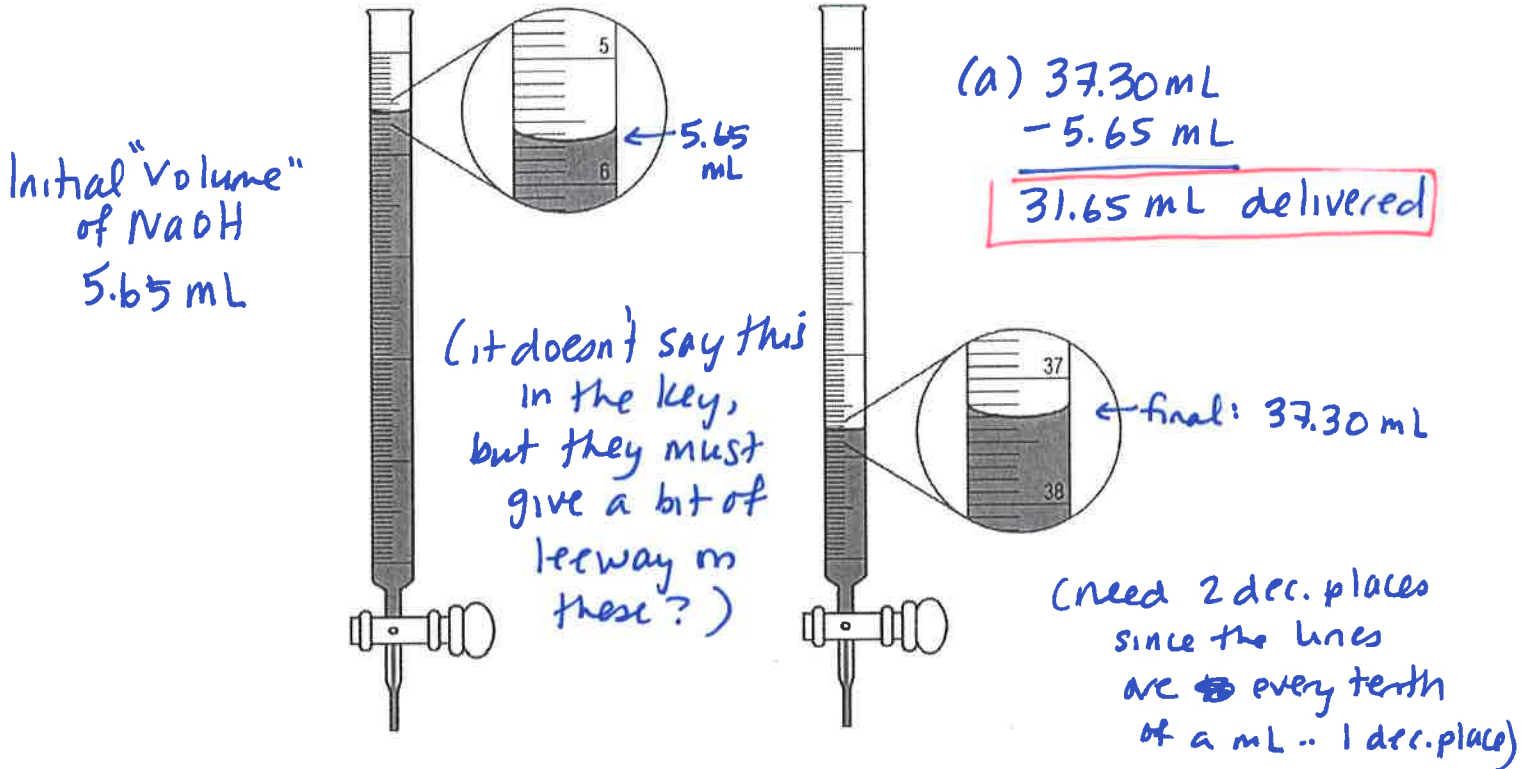 Initial "Volume"
of NaOH
5.65 mL
5
6
←5.65
mL
(it doesn't say this
in the key,
but they must
give a bit of
leeway on
these?)
(a) 37.30 mL
- 5.65 mL
31.65 mL delivered
37
38
←final: 37.30 mL
(need 2 dec. places
since the lines
are every tenth
of a mL .. 1 dec.place)